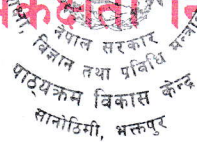 नेपाल सरकार
विज्ञान तथा प्रविधि
पाठ्यक्रम विकास केन्द्र
सानोठिमी, भक्तपुर